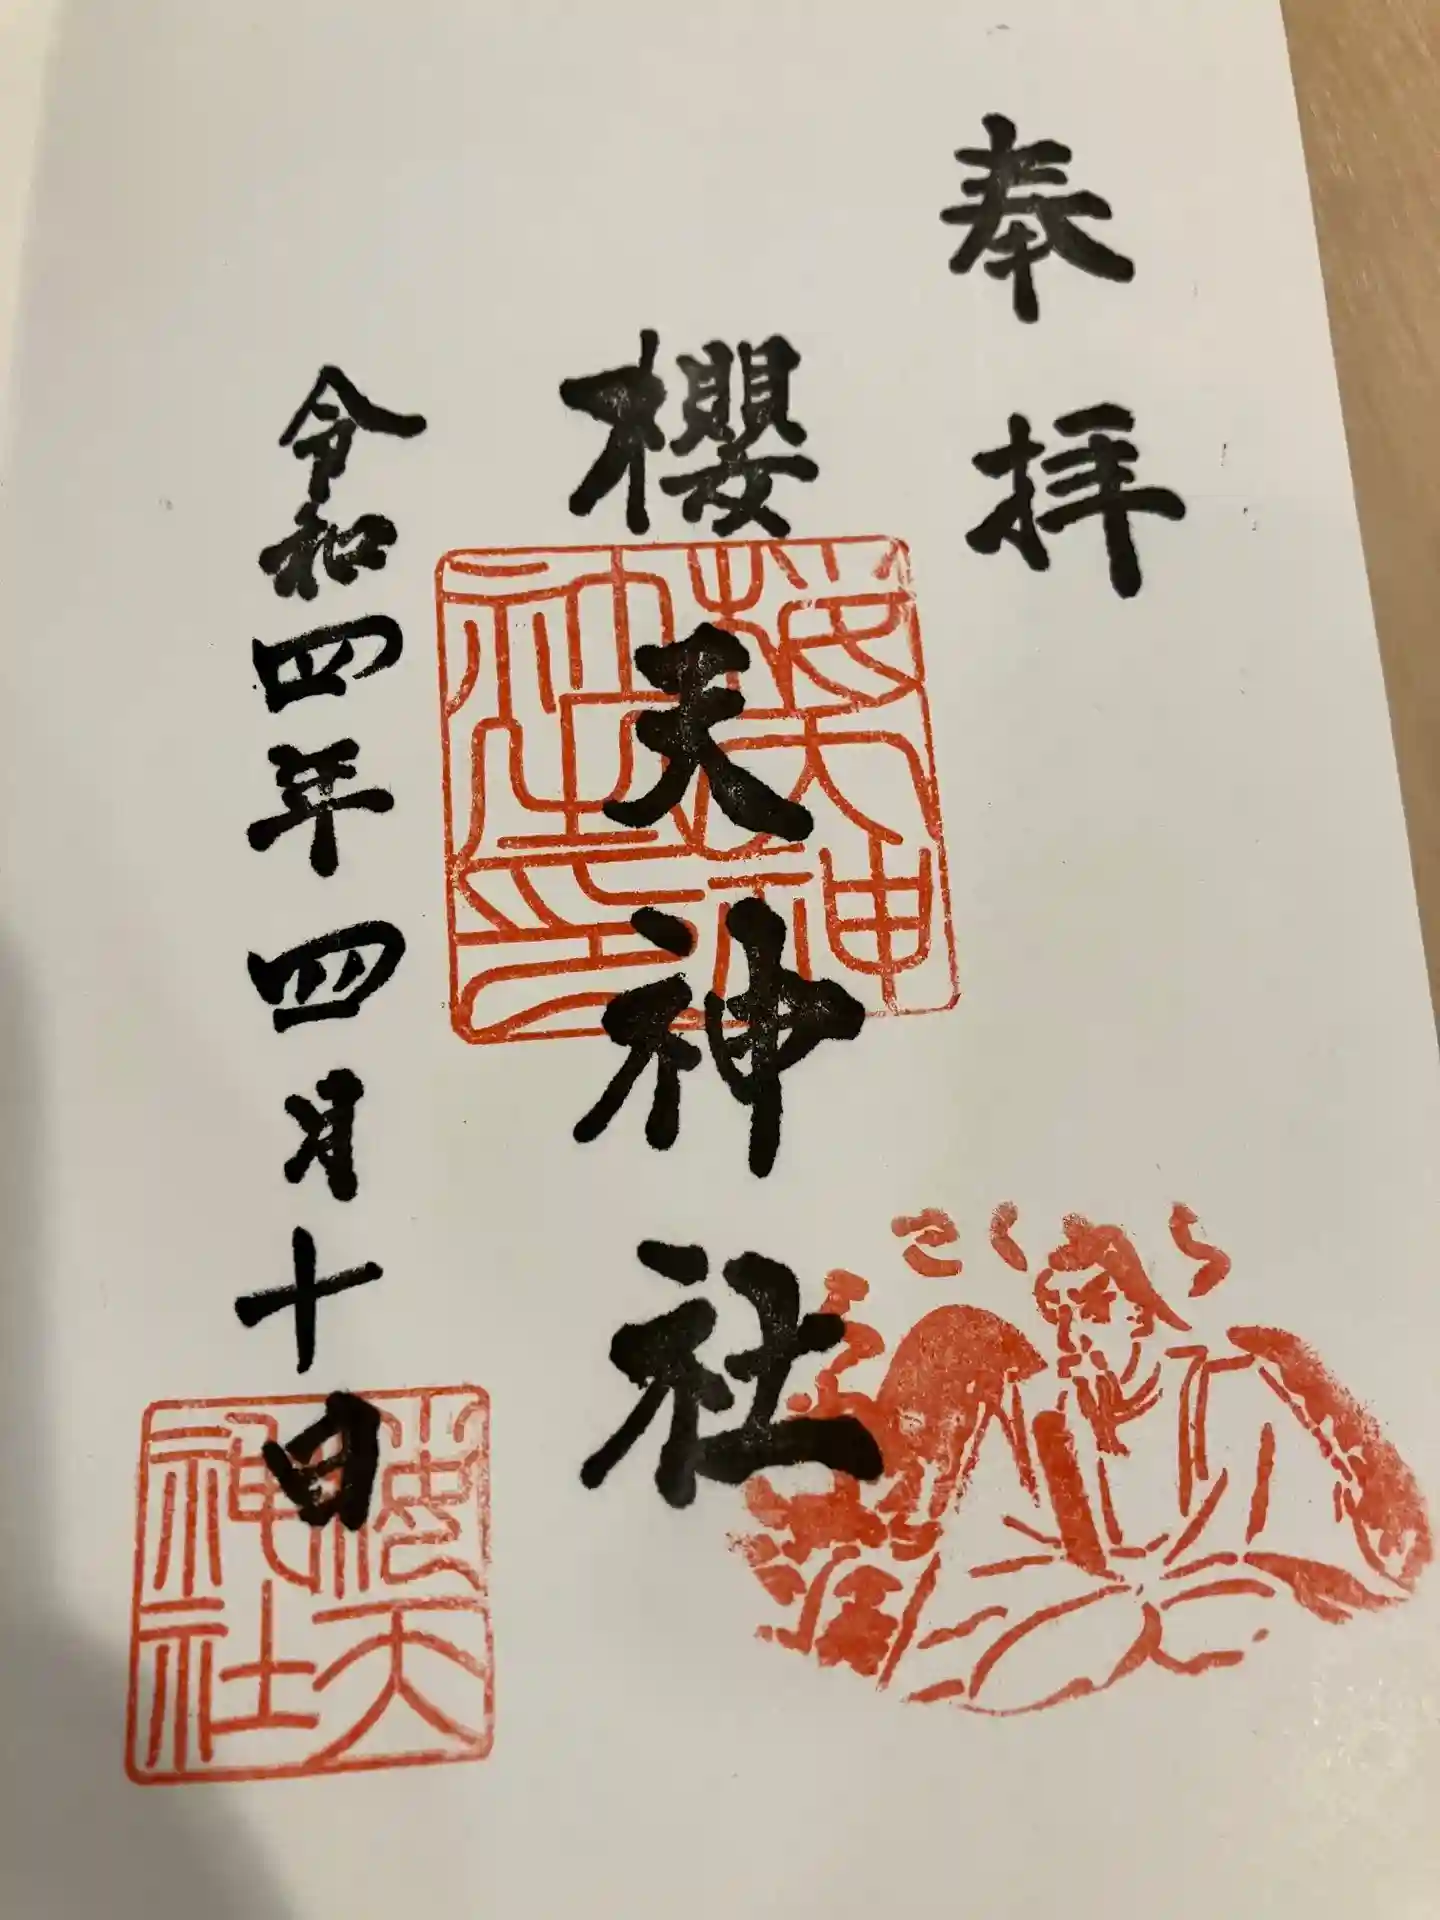 奉拝
櫻天神社
令和四年四月十日
櫻天神社之印
櫻天神社